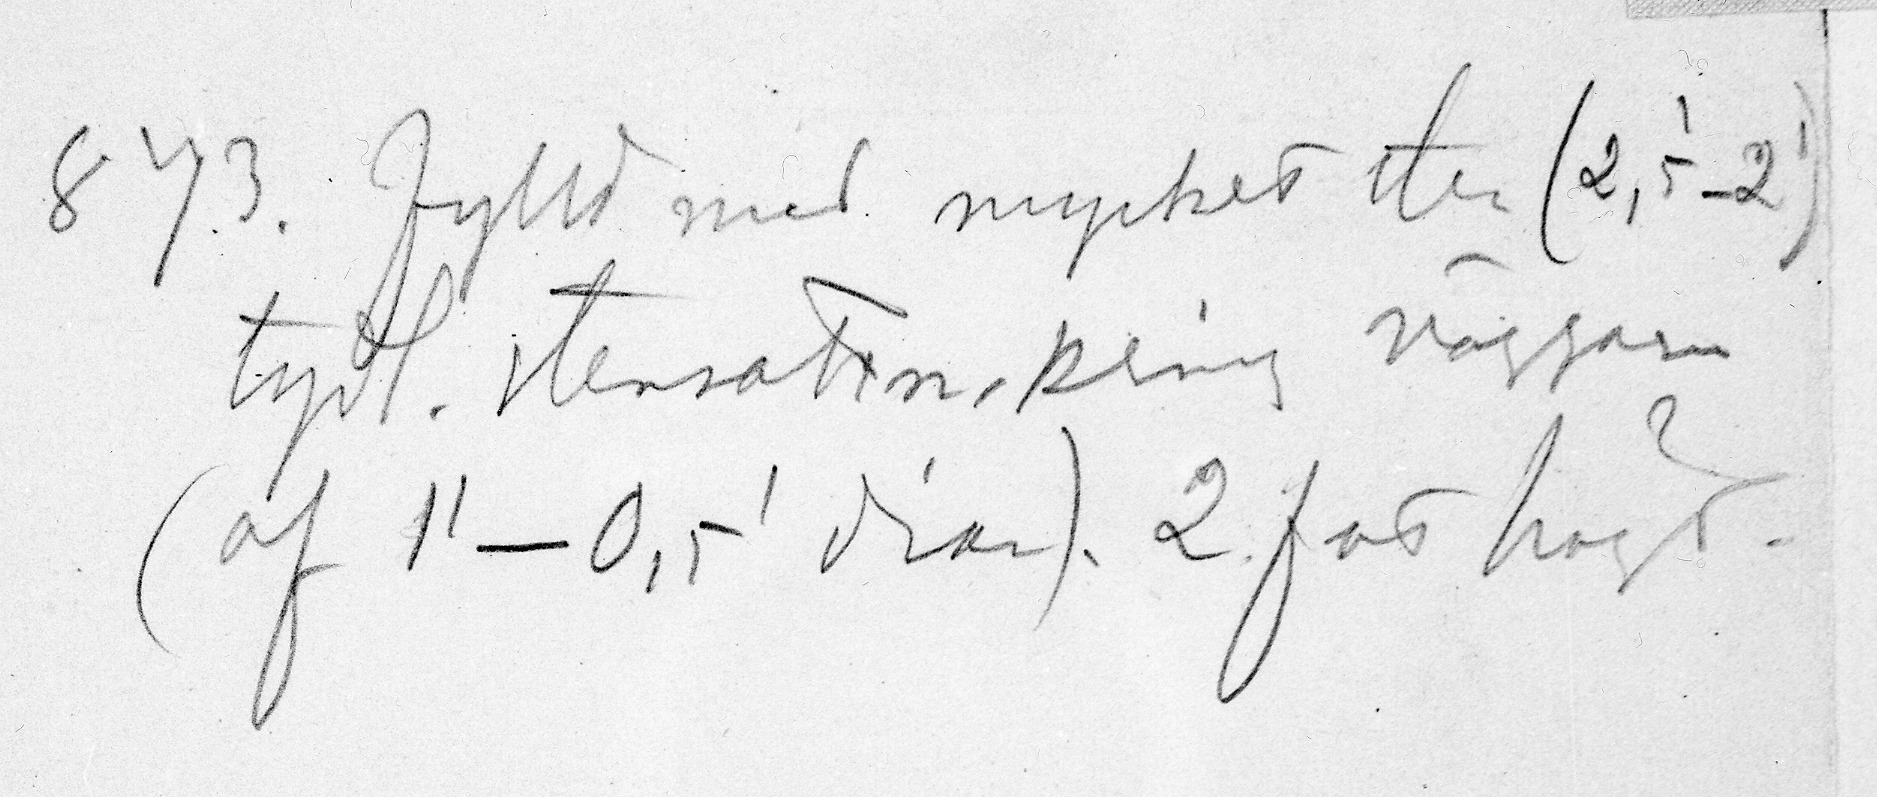 873. Fylld med mycket sten (2,5'-2')
tydl. stensattn. kring väggarn
(af 1' — 0,5' diam). 2 fot högt.